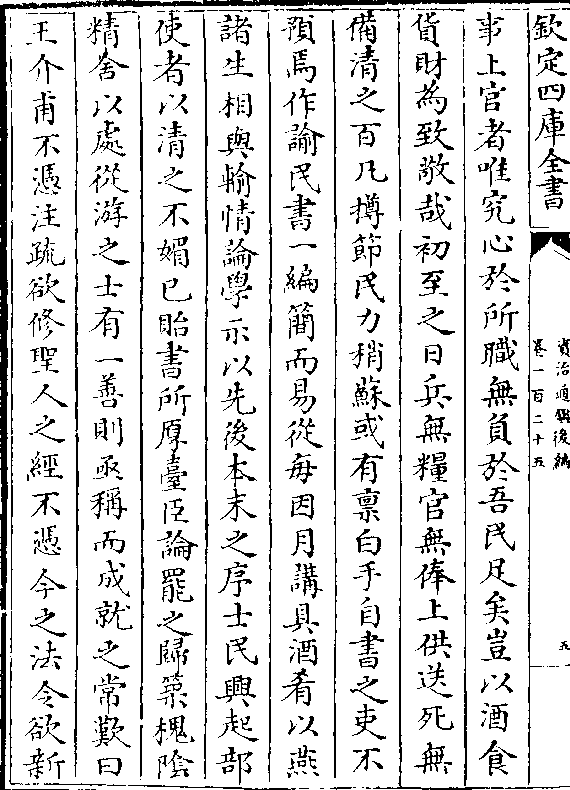 欽定四庫全書
資治通鑑後編
卷一百二十五
五
事上官者唯究心於所職無負於吾民足矣豈以酒食
貨財為致敬哉初至之日兵無糧官無俸上供送死無
備清之百凡撙節民力稍蘇或有禀白手自書之吏不
預焉作諭民書一編簡而易從每因月講具酒肴以燕
諸生相與輸情論學示以先後本末之序士民興起部
使者以清之不媚已貽書所厚臺臣論罷之歸築槐陰
精舍以處從游之士有一善則亟稱而成就之常歎曰
王介甫不憑注疏欲修聖人之經不憑今之法令欲新